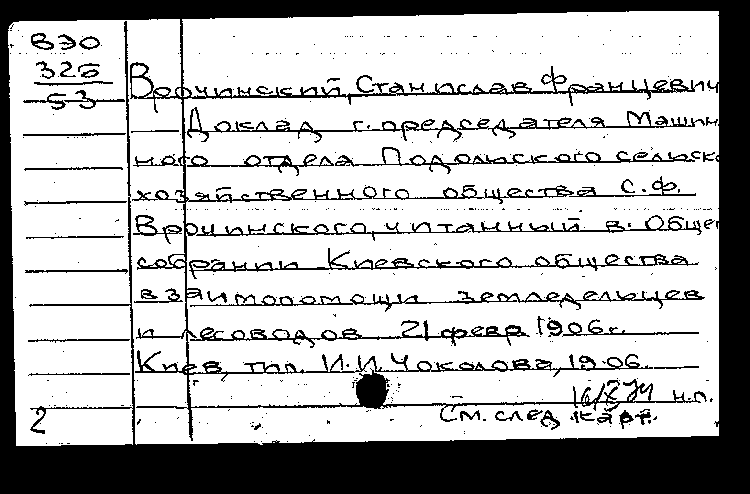 ВЭО
325
53
Врочинский, Станислав Францевич
Доклад г. председателя Машин-
ного отдела Подольского сельско-
хозяйственного общества С.Ф.
Врочинского, читанный в. Общем
собрании Киевского общества
взаимопомощи земледельцев
и лесоводов 21 февр 1906 г.
Киев, тип. И.И. Чоколова, 1906.
н.п.
2 См. след карт.